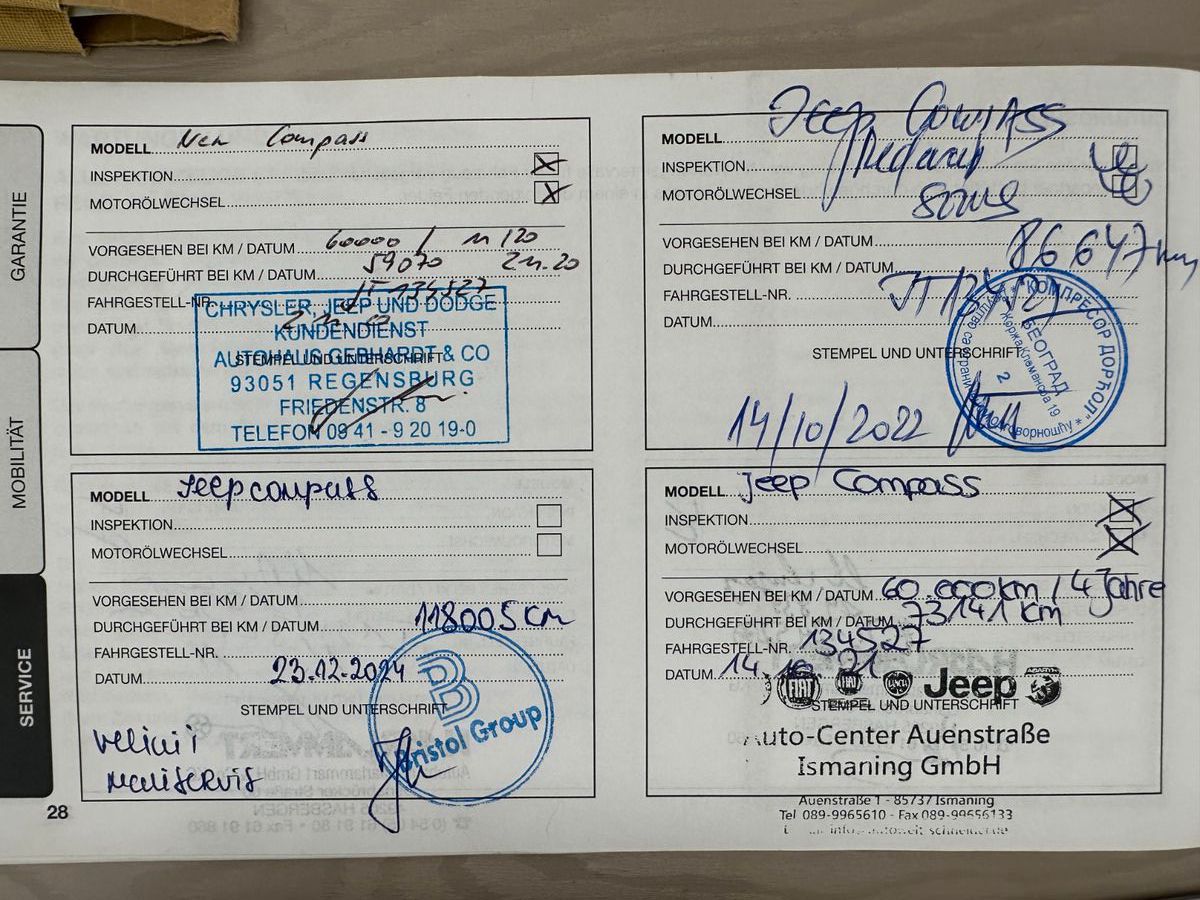 GARANTIE
MOBILITÄT
SERVICE
MODELL New Compass
INSPEKTION
MOTORÖLWECHSEL
VORGESEHEN BEI KM / DATUM 60000 / 11/20
DURCHGEFÜHRT BEI KM / DATUM 59070 2.11.20
FAHRGESTELL-NR. JT134527
DATUM
STEMPEL UND UNTERSCHRIFT
CHRYSLER, JEEP UND DODGE
KUNDENDIENST
AUTOHAUS GEBHARDT & CO
93051 REGENSBURG
FRIEDENSTR. 8
TELEFON 09 41 - 9 20 19-0
MODELL Jeep Compass
INSPEKTION
MOTORÖLWECHSEL
VORGESEHEN BEI KM / DATUM 86647 km
DURCHGEFÜHRT BEI KM / DATUM
FAHRGESTELL-NR.
DATUM
STEMPEL UND UNTERSCHRIFT
14/10/2022
"КОМПРЕСОР ДОРЋОЛ"
БЕОГРАД
Жоржа Клемансоа 19
2
MODELL Jeep compass
INSPEKTION
MOTORÖLWECHSEL
VORGESEHEN BEI KM / DATUM
DURCHGEFÜHRT BEI KM / DATUM 118005 cm
FAHRGESTELL-NR.
DATUM 23.12.2024
STEMPEL UND UNTERSCHRIFT
Bristol Group
veliki i
mali servis
MODELL Jeep Compass
INSPEKTION
MOTORÖLWECHSEL
VORGESEHEN BEI KM / DATUM 60.000km / 4 Jahre
DURCHGEFÜHRT BEI KM / DATUM 73141 km
FAHRGESTELL-NR. 134527
DATUM 14.10.21
FIAT Jeep ABARTH
STEMPEL UND UNTERSCHRIFT
Auto-Center Auenstraße
Ismaning GmbH
Auenstraße 1 - 85737 Ismaning
Tel 089-9965610 - Fax 089-99656133
28